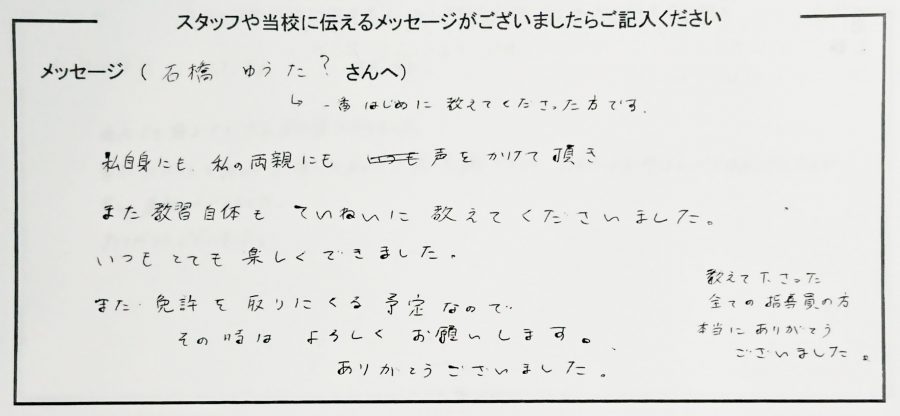 スタッフや当校に伝えるメッセージがございましたらご記入ください
メッセージ ( 石橋 ゆうた? さんへ)
↳ 一番はじめに 教えてくださった方です.
私自身にも、私の両親にも いつも 声をかけて頂き
また教習自体も ていねいに 教えてくださいました。
いつもとても楽しくできました。
また 免許を取りにくる予定なので
その時は よろしく お願いします。
ありがとうございました。
教えて下さった
全ての指導員の方
本当にありがとう
ございました。